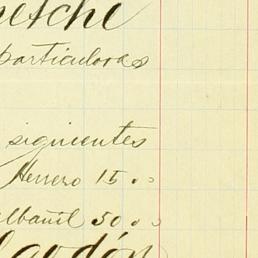 netche
particulares
siguientes
Herrero 15..
lbañil 50..
lgodón